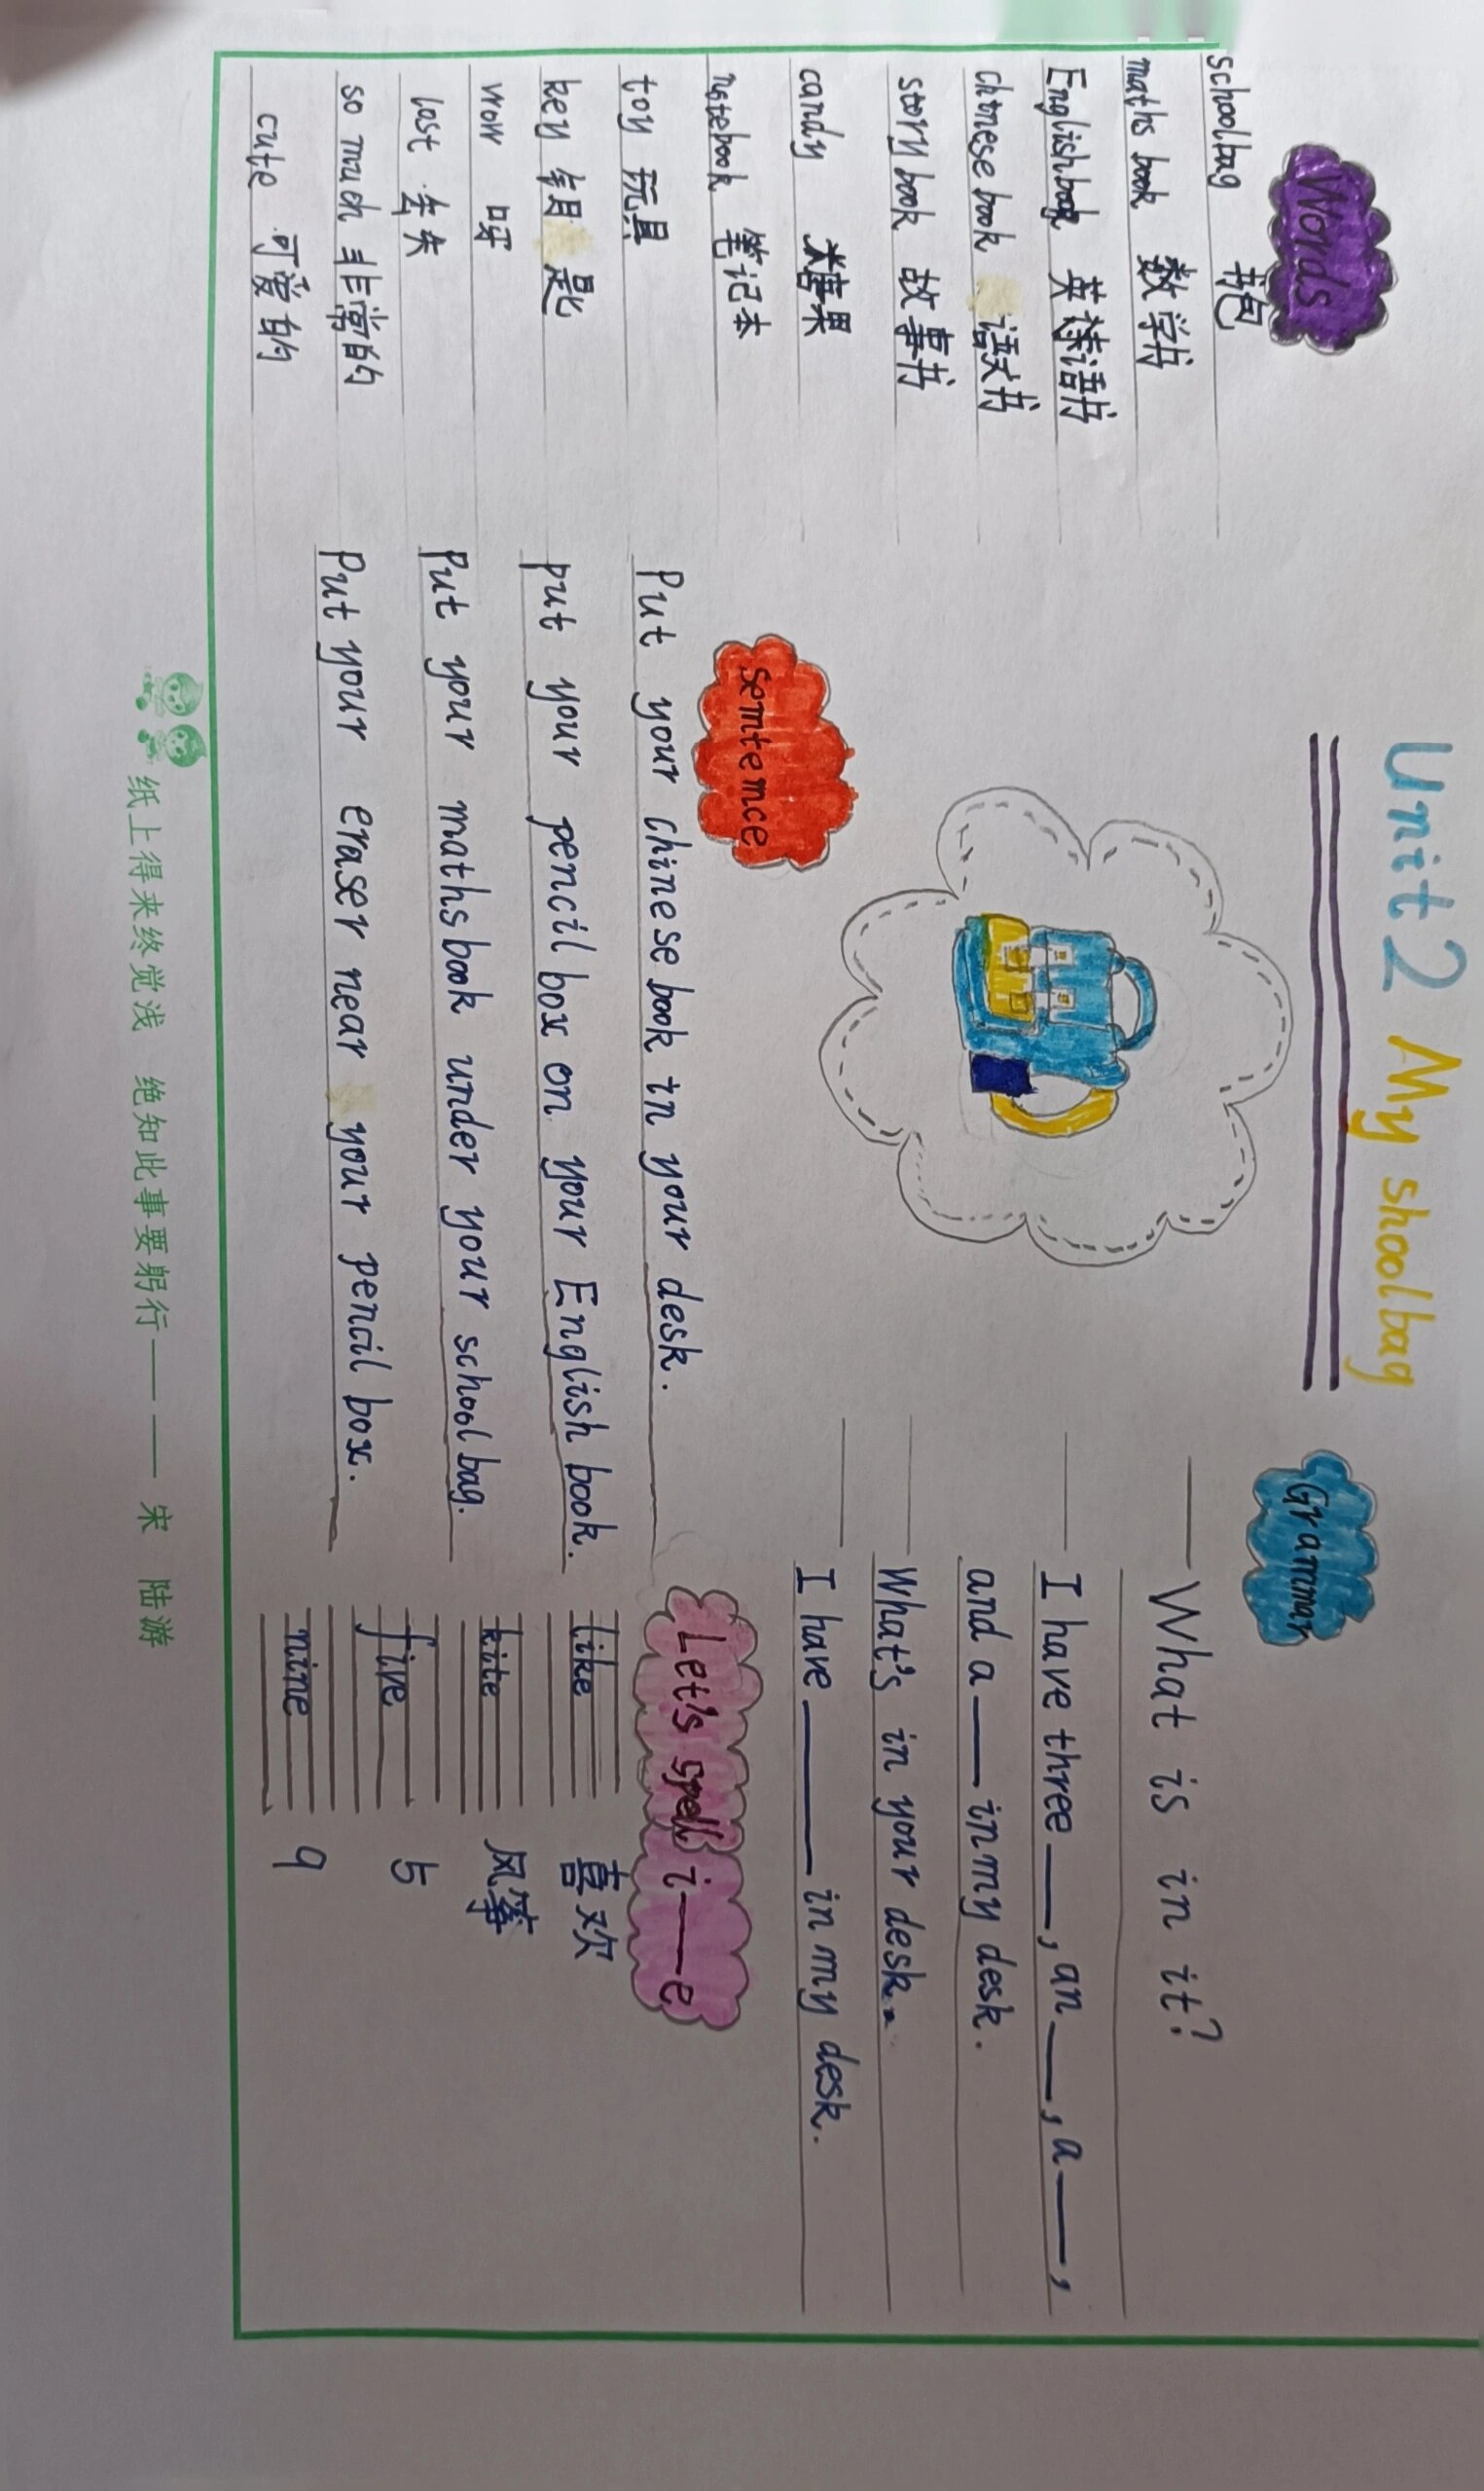 Unit 2 My shoolbag
Words
schoolbag 书包
maths book 数学书
English book 英语书
chinese book 语文书
story book 故事书
candy 糖果
notebook 笔记本
toy 玩具
key 钥匙
wow 呀
lost 丢失
so much 非常的
cute 可爱的
Semtemce
Put your chinese book in your desk.
put your pencil box on your English book.
Put your maths book under your schoolbag.
Put your eraser near your pencil box.
Grammar
—What is in it?
—I have three——, an——, a——,
and a—— in my desk.
—What's in your desk.
—I have——— in my desk.
Let's spell i——e
like 喜欢
kite 风筝
five 5
nine 9
纸上得来终觉浅 绝知此事要躬行—— 宋 陆游